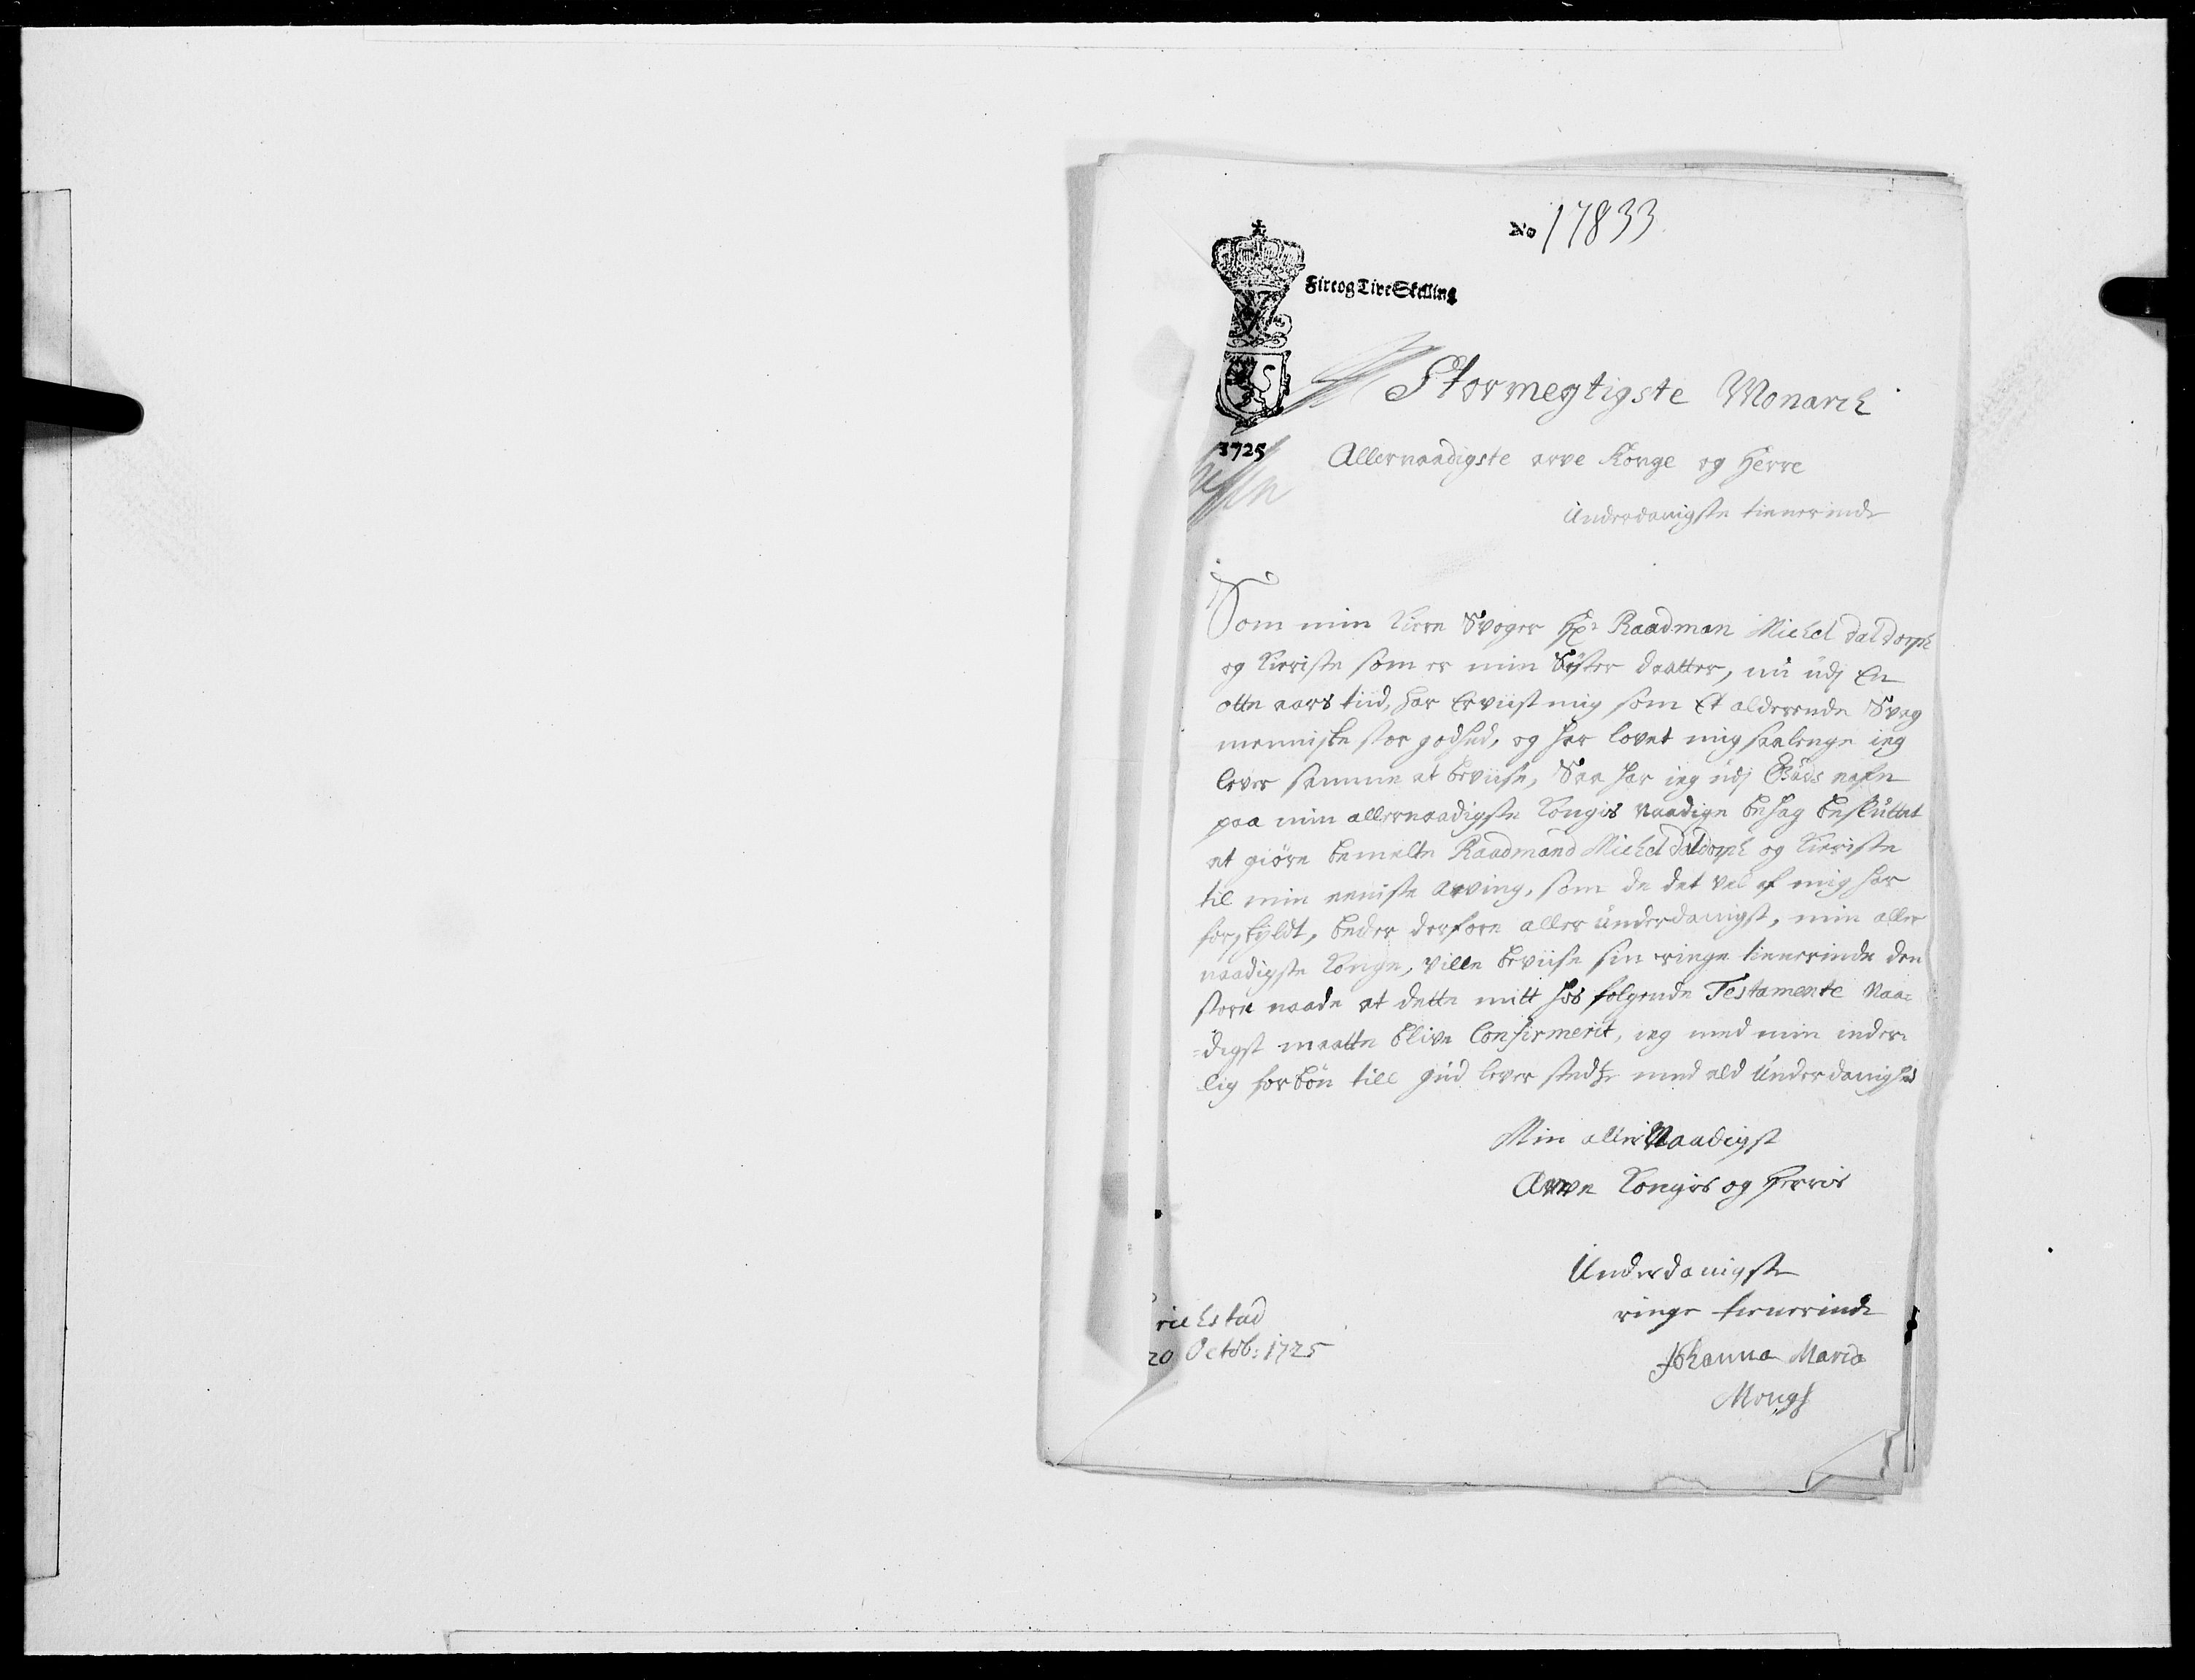 No 17833
Fire og Tive Skilling
1725
Stormegtigste Monarch
Allernaadigste arve Konge og Herre
Underdanigste tienerinde
Som min Kiere Svoger Hr Raadman Michel Daldorph
og Kieriste som er min Søster daatter, nu udj En
otte aars tiid, har Erviist mig som Et aldrende Svag
menniske stor godhed, og har lovet mig saalenge ieg
lever samme at beviise, Saa har ieg udj Guds nafn
paa min allernaadigste Kongis Naadige behag besluttet
at giøre bemelte Raadmand Michel Daldorph og Kieriste
til min eeniste arving, som de det vel af mig har
forskyldt, beder derfore aller underdanigst, min aller
naadigste Konge, ville beviise sin ringe tienerinde den
store naade at dette mitt hos folgende Testamente Naa=
=digst maatte blive Confirmerit, ieg med min inder=
lig forbøn till gud lever stedse med ald Underdanighed
Min allerNaadigst
Arve Kongis og Herris
Underdanigste
ringe tienerinde
richstad
20 Octob: 1725
Johanna Maria